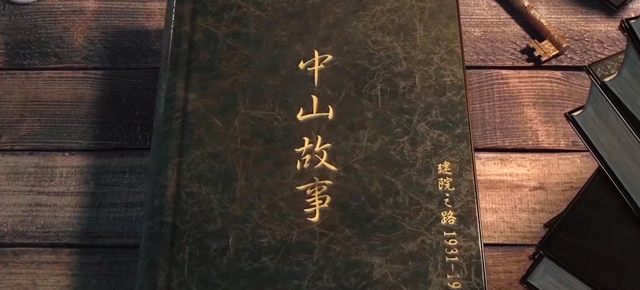 中山故事
建院之路 1931-19